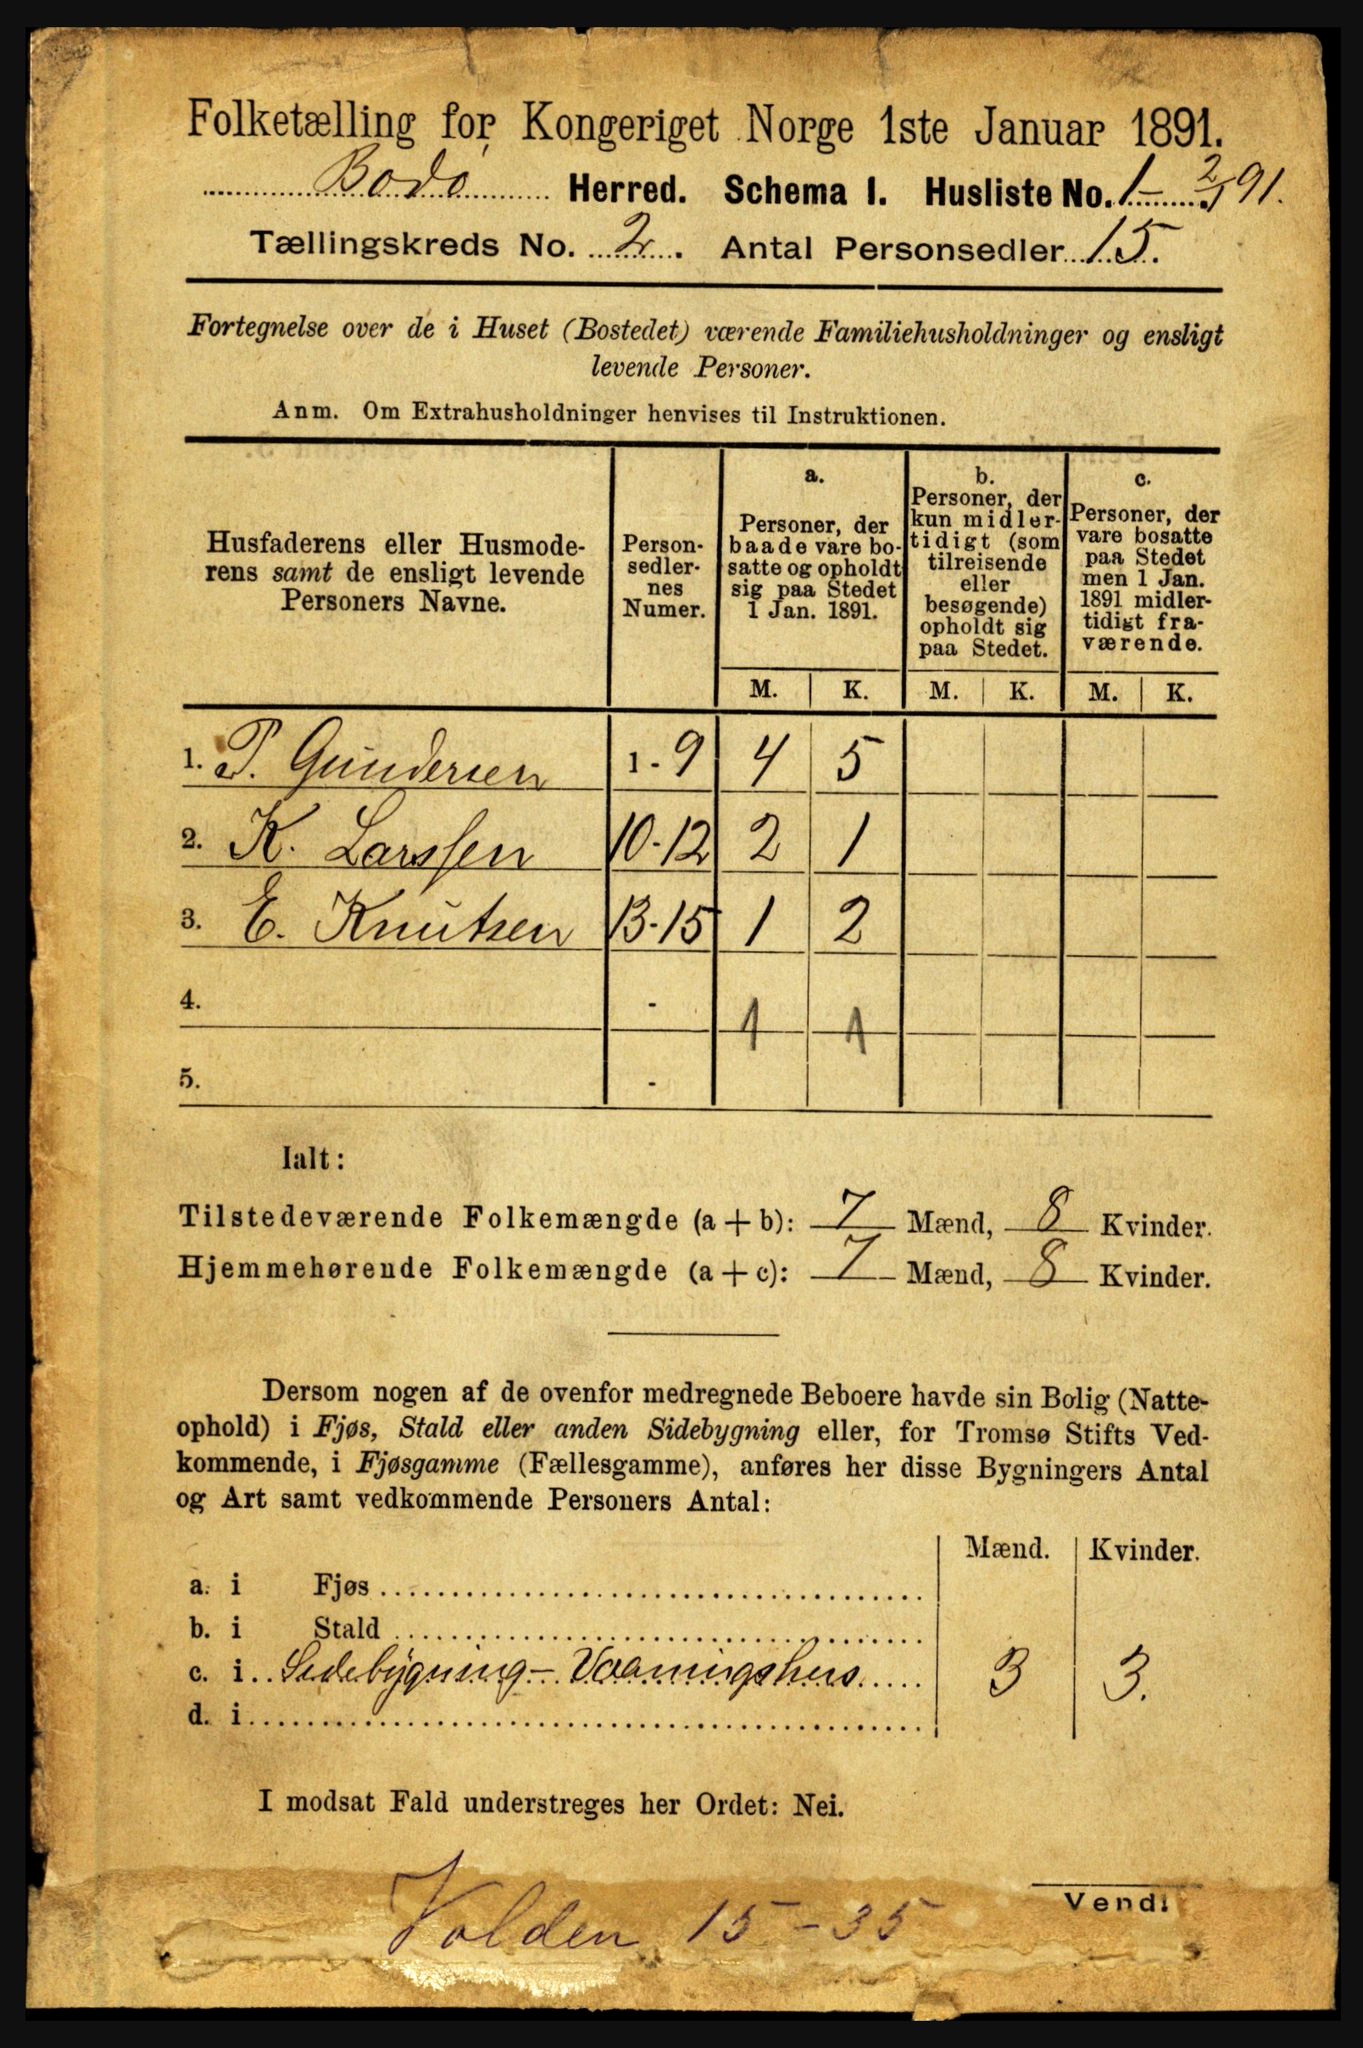 Folketælling for Kongeriget Norge 1ste Januar 1891.
Bodö Herred. Schema I. Husliste No. 1 - 2/1 91.
Tællingskreds No. 2. Antal Personsedler 15.
Fortegnelse over de i Huset (Bostedet) værende Familiehusholdninger og ensligt
levende Personer.
Anm. Om Extrahusholdninger henvises til Instruktionen.
Husfaderens eller Husmode-
rens samt de ensligt levende
Personers Navne.
Person-
sedler-
nes
Numer.
a.
Personer, der
baade vare bo-
satte og opholdt
sig paa Stedet
1 Jan. 1891.
b.
Personer, der
kun midler-
tidigt (som
tilreisende
eller
besøgende)
opholdt sig
paa Stedet.
c.
Personer, der
vare bosatte
paa Stedet
men 1 Jan.
1891 midler-
tidigt fra-
værende.
M. K. M. K. M. K.
1. P. Gundersen 1 - 9 4 5
2. K. Larssen 10-12 2 1
3. E. Knutsen 13-15 1 2
4. - 1 1
5. -
Ialt:
Tilstedeværende Folkemængde (a + b): 7 Mænd, 8 Kvinder.
Hjemmehørende Folkemængde (a + c): 7 Mænd, 8 Kvinder.
Dersom nogen af de ovenfor medregnede Beboere havde sin Bolig (Natte-
ophold) i Fjøs, Stald eller anden Sidebygning eller, for Tromsø Stifts Ved-
kommende, i Fjøsgamme (Fællesgamme), anføres her disse Bygningers Antal
og Art samt vedkommende Personers Antal:
Mænd. Kvinder.
a. i Fjøs
b. i Stald
c. i Sidebygning - Vaaningshus 3 3.
d. i
I modsat Fald understreges her Ordet: Nei.
Vend!
Volden 15 - 35